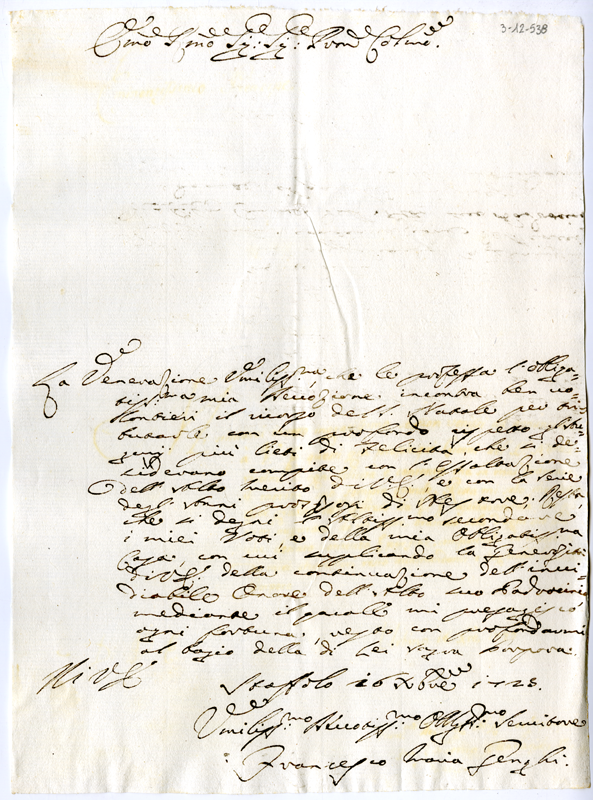 3-12-538
Em̃o Rm̃o Sig: Sig: Pron Colmo.
La Venerazione Umilissma, che le professa l'obliga-
tissma mia Devozione incontra ben vo-
lontieri il ... del S. Natale per tri-
butarle con un profondo rispetto gl'Au-
gurij più lieti di Felicità, che si de-
siderano compite con l'Essaltazione
dell'Alto merito di V. E. e con la serie
degl'Anni
che si degni l'Altissimo secondare
i miei Voti, e della mia Obligatissma
Casa con cui supplicando la Generosità
di V. E. della continuazione dell'invi-
diabile Onore dell'Alto suo Padrocinio
mediante il quale mi presagisco
ogni fortuna, resto con profondarmi
al bagio della di Lei sagra porpora.
Di V. E.
Staffolo 16 Xbre 1723.
Umilissmo Devotissmo Obligmo Servitore
Francesco Maria Genghi.